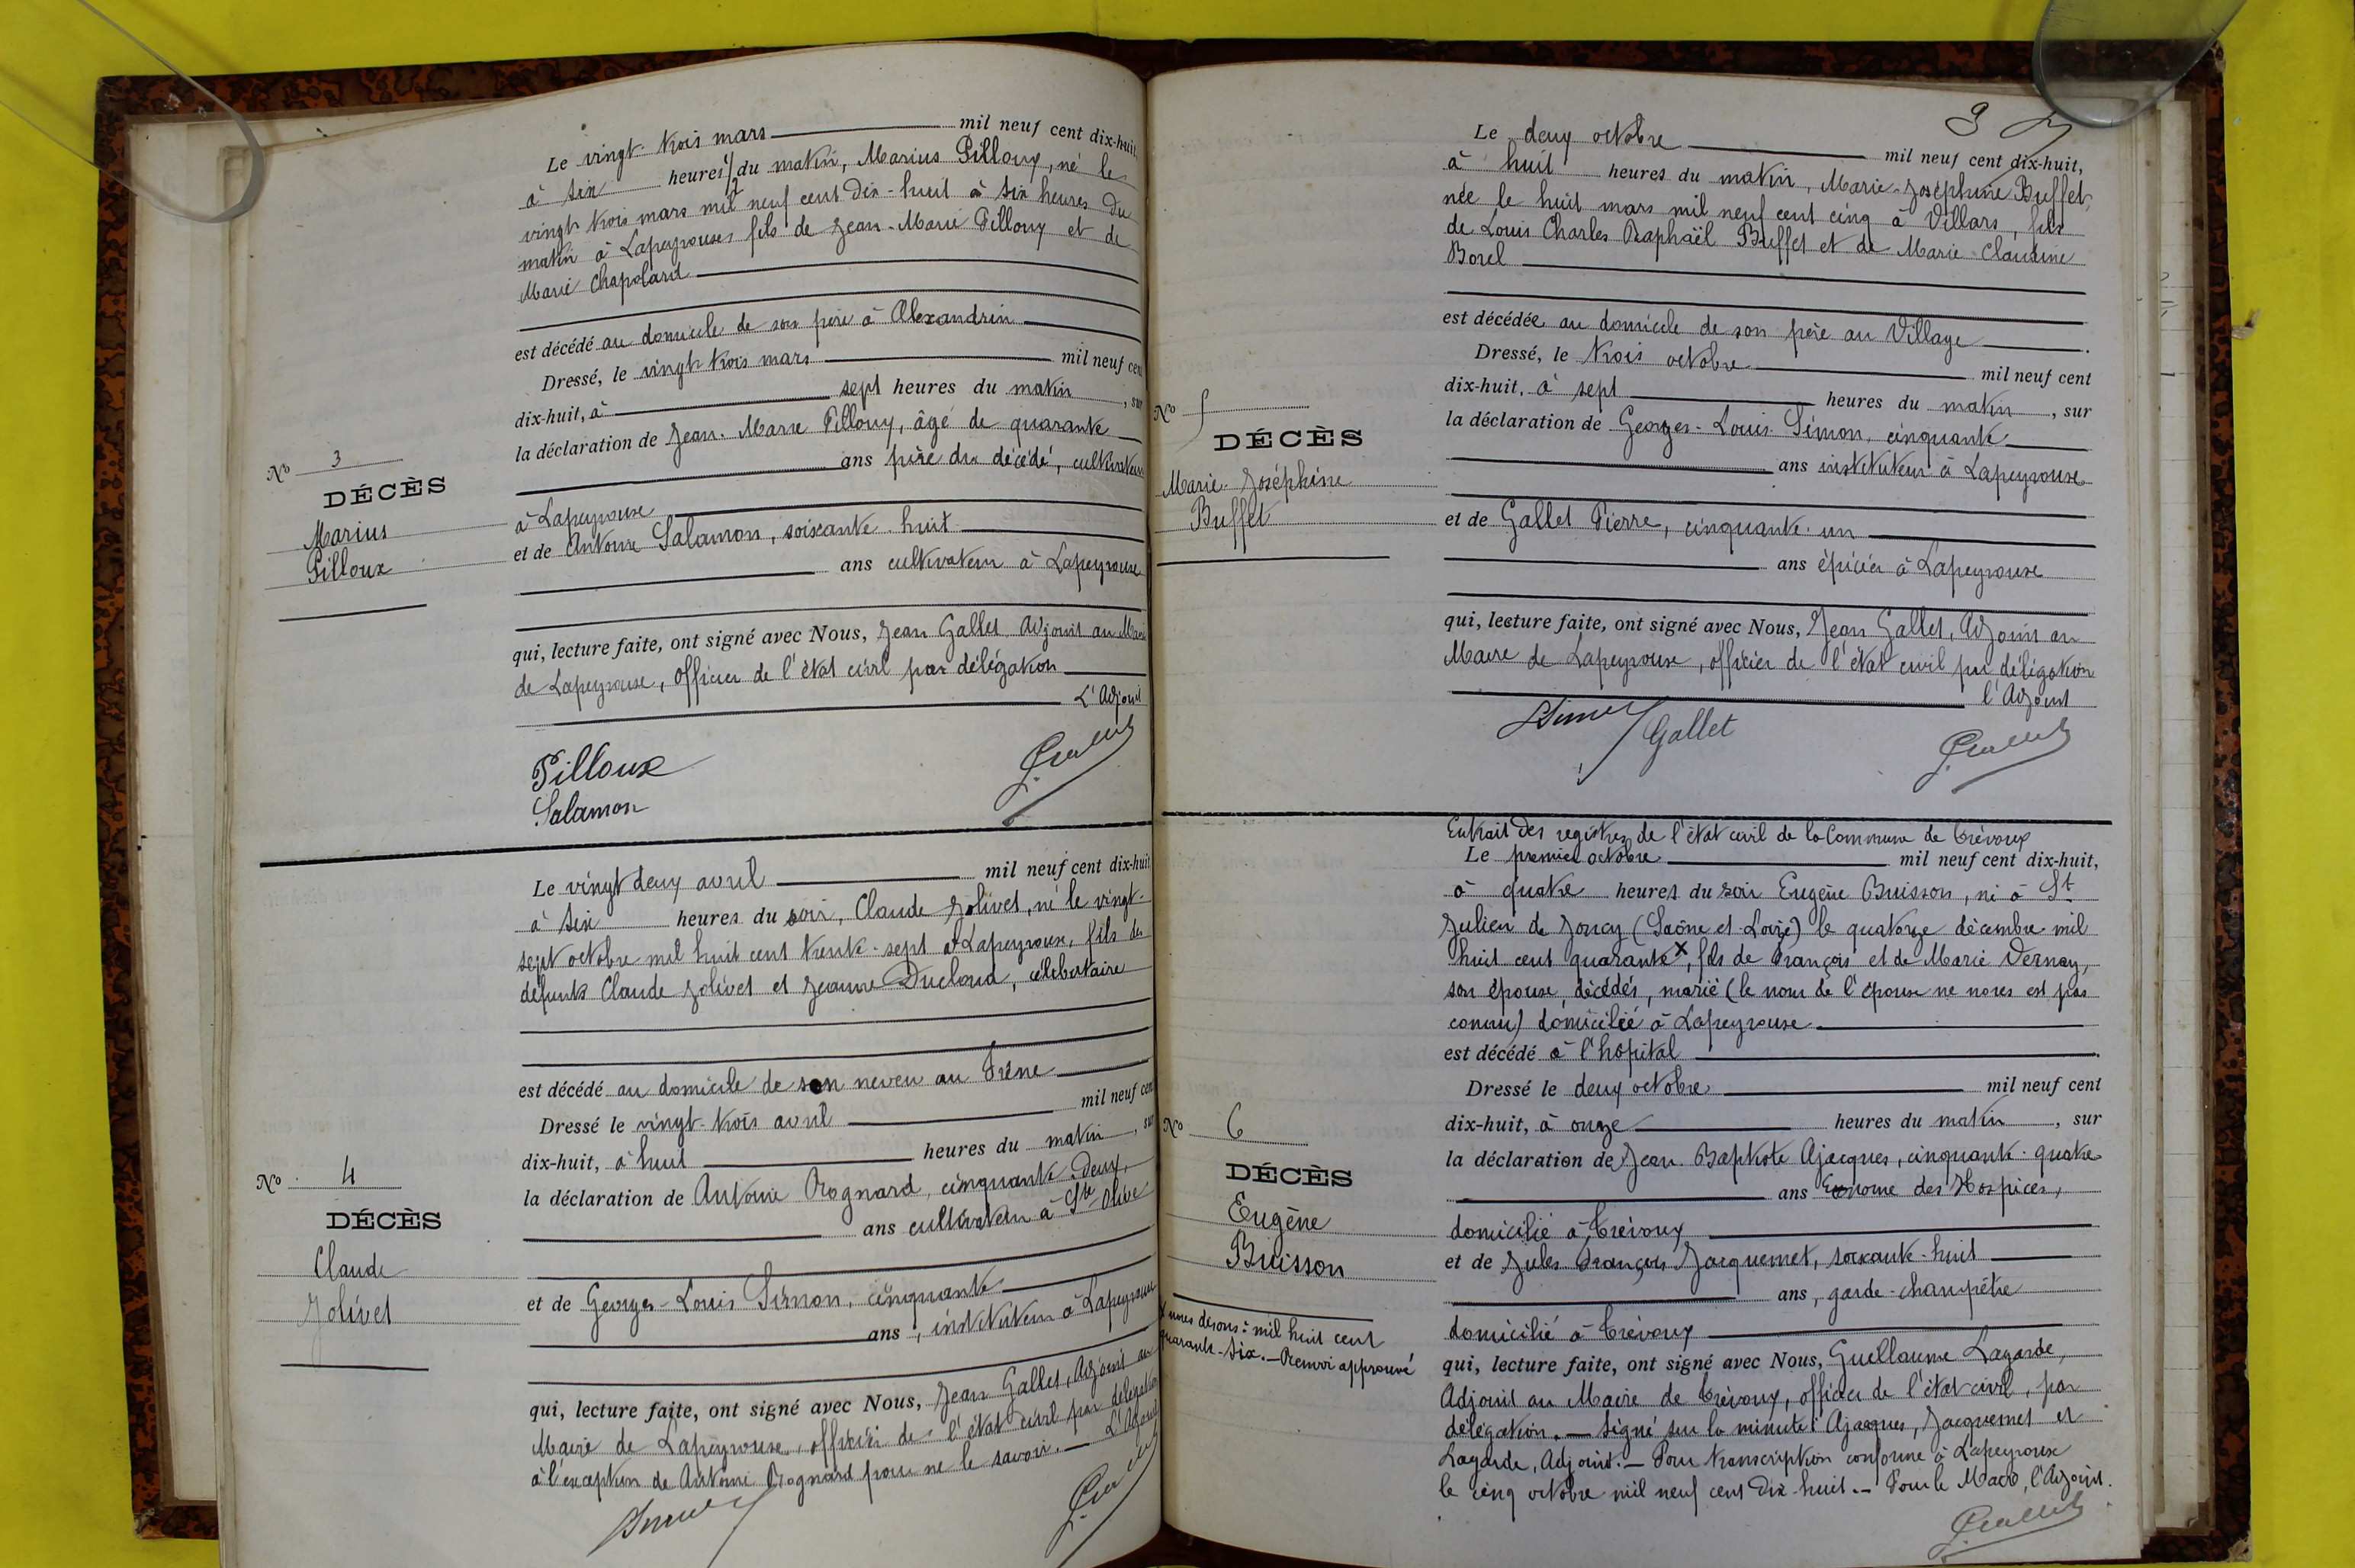 Le vingt-trois mars mil neuf cent dix-huit,
à six heures 1/2 du matin, Marius Pilloux, né le
vingt trois mars mil neuf cent dix-huit à six heures du
matin à Lapeyrouse, fils de Jean-Marie Pilloux et de
Marie Chapolard
est décédé au domicile de son père à Alexandrin
Dressé, le vingt trois mars mil neuf cent
dix-huit, à sept heures du matin, sur
la déclaration de Jean-Marie Pilloux, âgé de quarante
ans père du décédé, cultivateur
No 3
DÉCÈS
Marius
Pilloux
à Lapeyrouse
et de Antoine Salamon, soixante-huit
ans cultivateur à Lapeyrouse
qui, lecture faite, ont signé avec Nous, Jean Gallet, Adjoint au Maire
de Lapeyrouse, officier de l'état civil par délégation
L'Adjoint
Pilloux
Salamon
J. Gallet
Le vingt deux avril mil neuf cent dix-huit
à six heures du soir, Claude Jolivet, né le vingt-
sept octobre mil huit cent trente-sept à Lapeyrouse, fils de
défunts Claude Jolivet et Jeanne Ducloud, célibataire
est décédé au domicile de son neveu au Frêne
Dressé le vingt-trois avril mil neuf cent
dix-huit, à huit heures du matin, sur
la déclaration de Antoine Rognard, cinquante-deux
ans cultivateur à Ste Olive
No 4
DÉCÈS
Claude
Jolivet
et de Georges-Louis Simon, cinquante
ans, instituteur à Lapeyrouse
qui, lecture faite, ont signé avec Nous, Jean Gallet, Adjoint au
Maire de Lapeyrouse, officier de l'état civil par délégation
à l'exception de Antoine Rognard pour ne le savoir. — L'Adjoint
Simon
J. Gallet
9
Le deux octobre mil neuf cent dix-huit,
à huit heures du matin, Marie-Joséphine Buffet,
née le huit mars mil neuf cent cinq à Villars, fille
de Louis Charles Raphaël Buffet et de Marie-Claudine
Borel
est décédée au domicile de son père au Village
Dressé, le trois octobre mil neuf cent
dix-huit, à sept heures du matin, sur
la déclaration de Georges-Louis Simon, cinquante
ans instituteur à Lapeyrouse
No 5
DÉCÈS
Marie-Joséphine
Buffet
et de Gallet Pierre, cinquante-un
ans épicier à Lapeyrouse
qui, lecture faite, ont signé avec Nous, Jean Gallet, Adjoint au
Maire de Lapeyrouse, officier de l'état civil par délégation
l'Adjoint
Simon
Gallet
J. Gallet
Extrait des registres de l'état civil de la Commune de Trévoux
Le premier octobre mil neuf cent dix-huit,
à quatre heures du soir Eugène Buisson, né à St
Julien de Joncy (Saône et Loire) le quatorze décembre mil
huit cent quarante x, fils de François et de Marie Vernay,
son épouse, décédés, marié (le nom de l'épouse ne nous est pas
connu) domicilié à Lapeyrouse
est décédé à l'hôpital
Dressé le deux octobre mil neuf cent
dix-huit, à onze heures du matin, sur
la déclaration de Jean-Baptiste Ajacques, cinquante-quatre
ans Econome des Hospices,
domicilié à Trévoux
No 6
DÉCÈS
Eugène
Buisson
et de Jules François Jacquemet, soixante-huit
ans, garde-champêtre
domicilié à Trévoux
x nous disons : mil huit cent
quarante-six. — Renvoi approuvé
qui, lecture faite, ont signé avec Nous, Guillaume Lagarde,
Adjoint au Maire de Trévoux, officier de l'état civil, par
délégation. — Signé sur la minute : Ajacques, Jacquemet et
Lagarde, Adjoint. — Pour transcription conforme à Lapeyrouse
le cinq octobre mil neuf cent dix-huit. — Pour le Maire, l'Adjoint.
J. Gallet